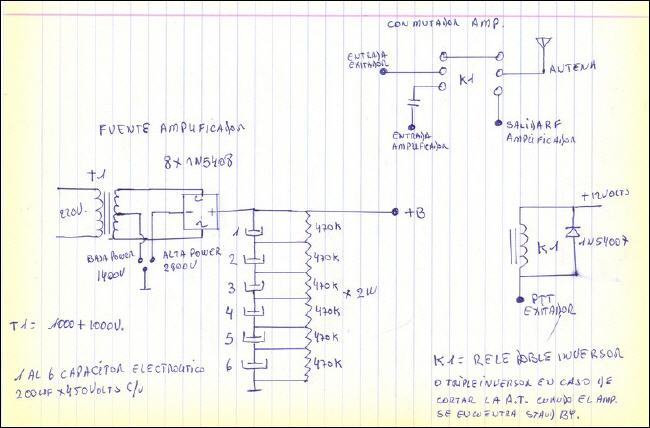 CONMUTADOR AMP.
ENTRADA
EXITADOR
K1
ANTENA
ENTRADA
AMPLIFICADOR
SALIDA RF
AMPLIFICADOR
FUENTE AMPLIFICADOR
8 x 1N5408
T1
220V.
+B
BAJA POWER
1400V
ALTA POWER
2800V
1
2
3
4
5
6
470K
470K
470K
470K
470K
470K
x 2W
+12VOLTS
K1
1N54007
PTT
EXITADOR
T1 = 1000 + 1000V.
1 AL 6 CAPACITOR ELECTROLITICO
200UF x 450VOLTS C/U
K1 = RELE DOBLE INVERSOR
O TRIPLE INVERSOR EN CASO DE
CORTAR LA A.T. CUANDO EL AMP.
SE ENCUENTRA STAND BY.